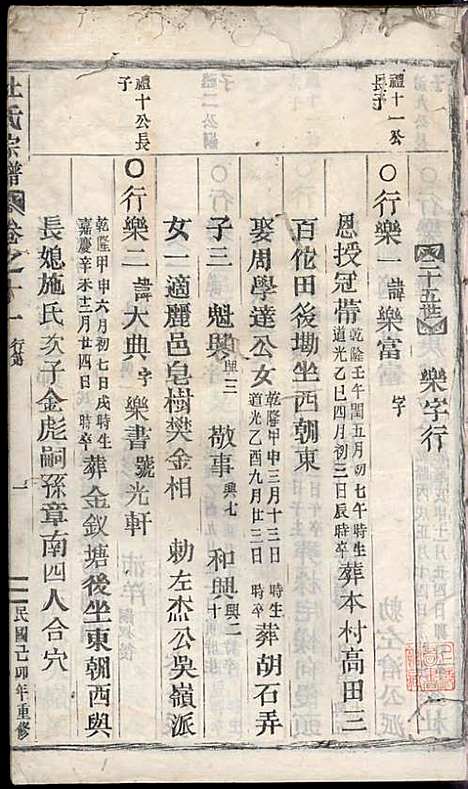 二十五世 樂字行
禮十一公長子
○行樂一 諱樂富 字
恩授冠帶 乾隆壬午閏五月初七午時生 道光乙巳四月初三日辰時卒 葬本村高田三
百伦田後坳坐西朝東
娶周學達公女 乾隆甲申三月十三日 時生 道光乙酉九月廿三日 時卒 葬胡石弄
子三 魁興 興三 敬事 興七 和興 興二十
女一適麗邑皂樹樊金相 勅左杰公吳嶺派
禮十公長子
○行樂二 諱大典 字樂書 號光軒
乾隆甲申六月初七日戌時生 嘉慶辛未十二月廿四日 時卒 葬金釵塘後坐東朝西與
長媳施氏次子金彪嗣孫章南四人合穴
杜氏宗譜 卷之十一 行第 一 民國己卯年重修